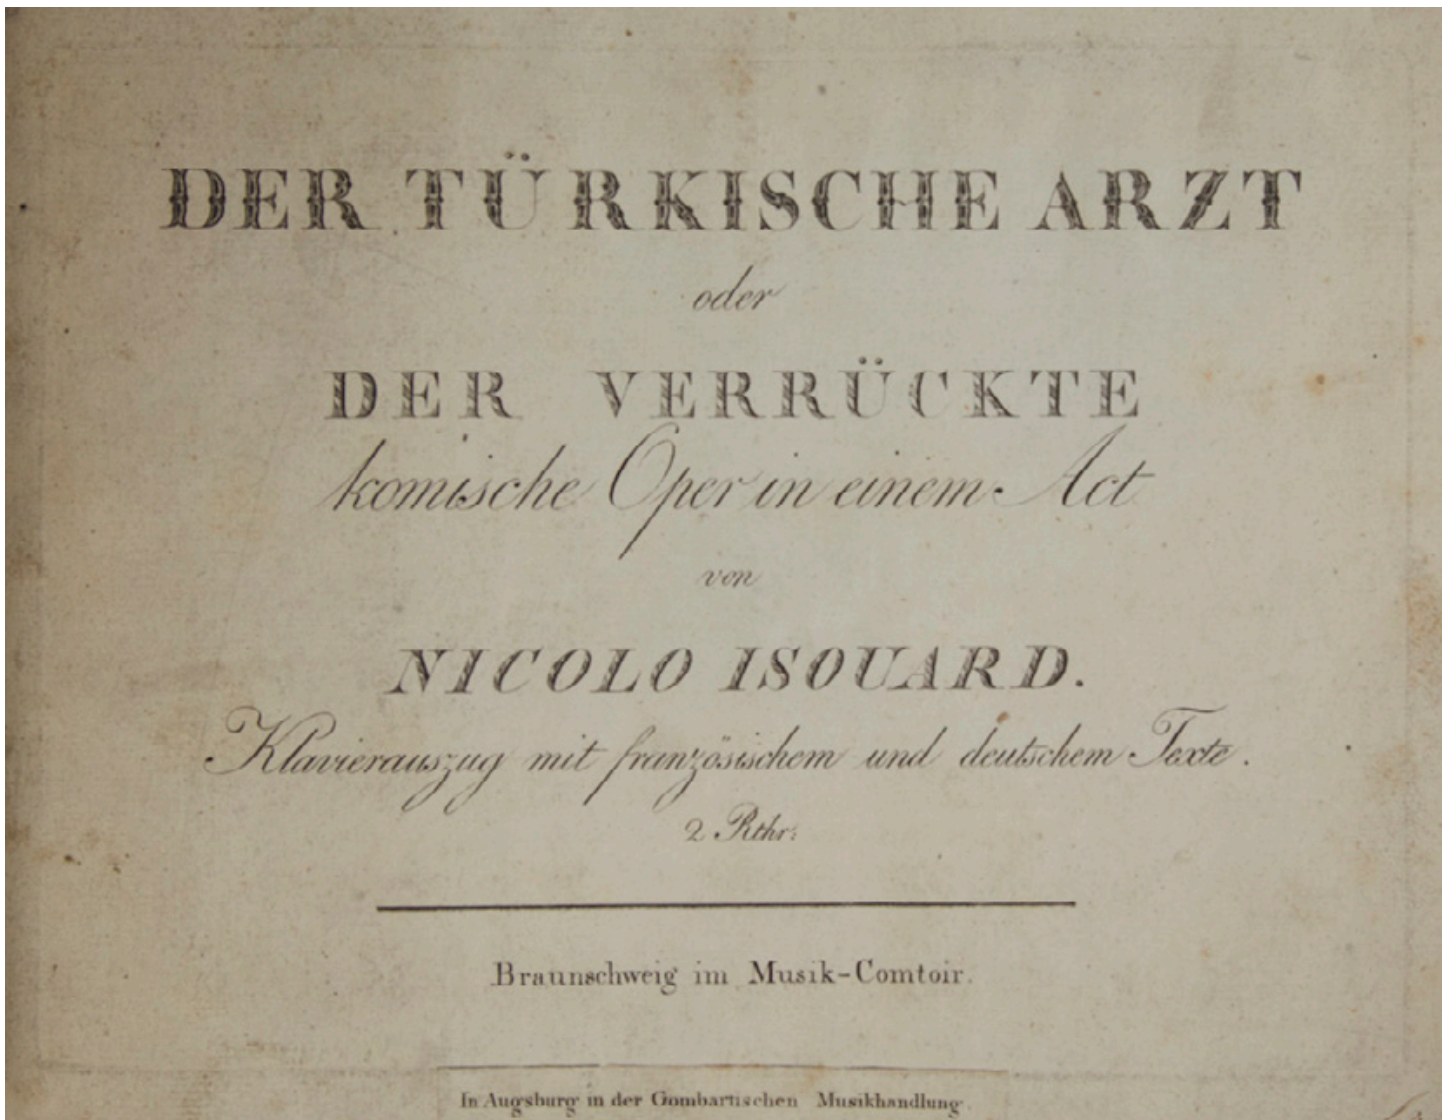 DER TÜRKISCHE ARZT
oder
DER VERRÜCKTE
komische Oper in einem Act
von
NICOLO ISOUARD.
Klavierauszug mit französischem und deutschem Texte.
2 Rthr:
Braunschweig im Musik-Comtoir.
In Augsburg in der Gombartischen Musikhandlung.